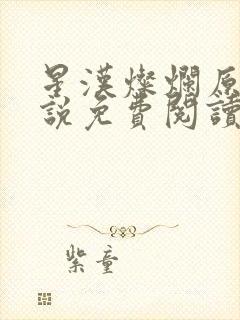 星漢燦爛原
說免費閱讀
紫童